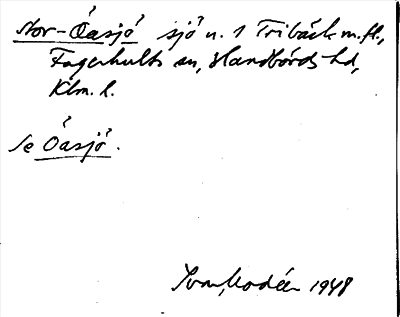 Stor-Öasjö sjö n. 1 Tribäck m.fl.,
Fagerhults sn, Handbörds hd,
Klm. l.
Se Öasjö.
Ivar Modéer 1948